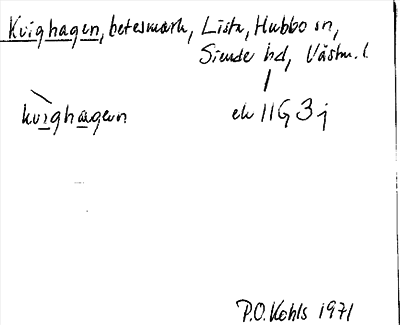 Kvighagen, betesmark, Lista, Hubbo sn,
Siende hd, Västm. l.
kvighagen ek 11G3j
P.O. Kohls 1971